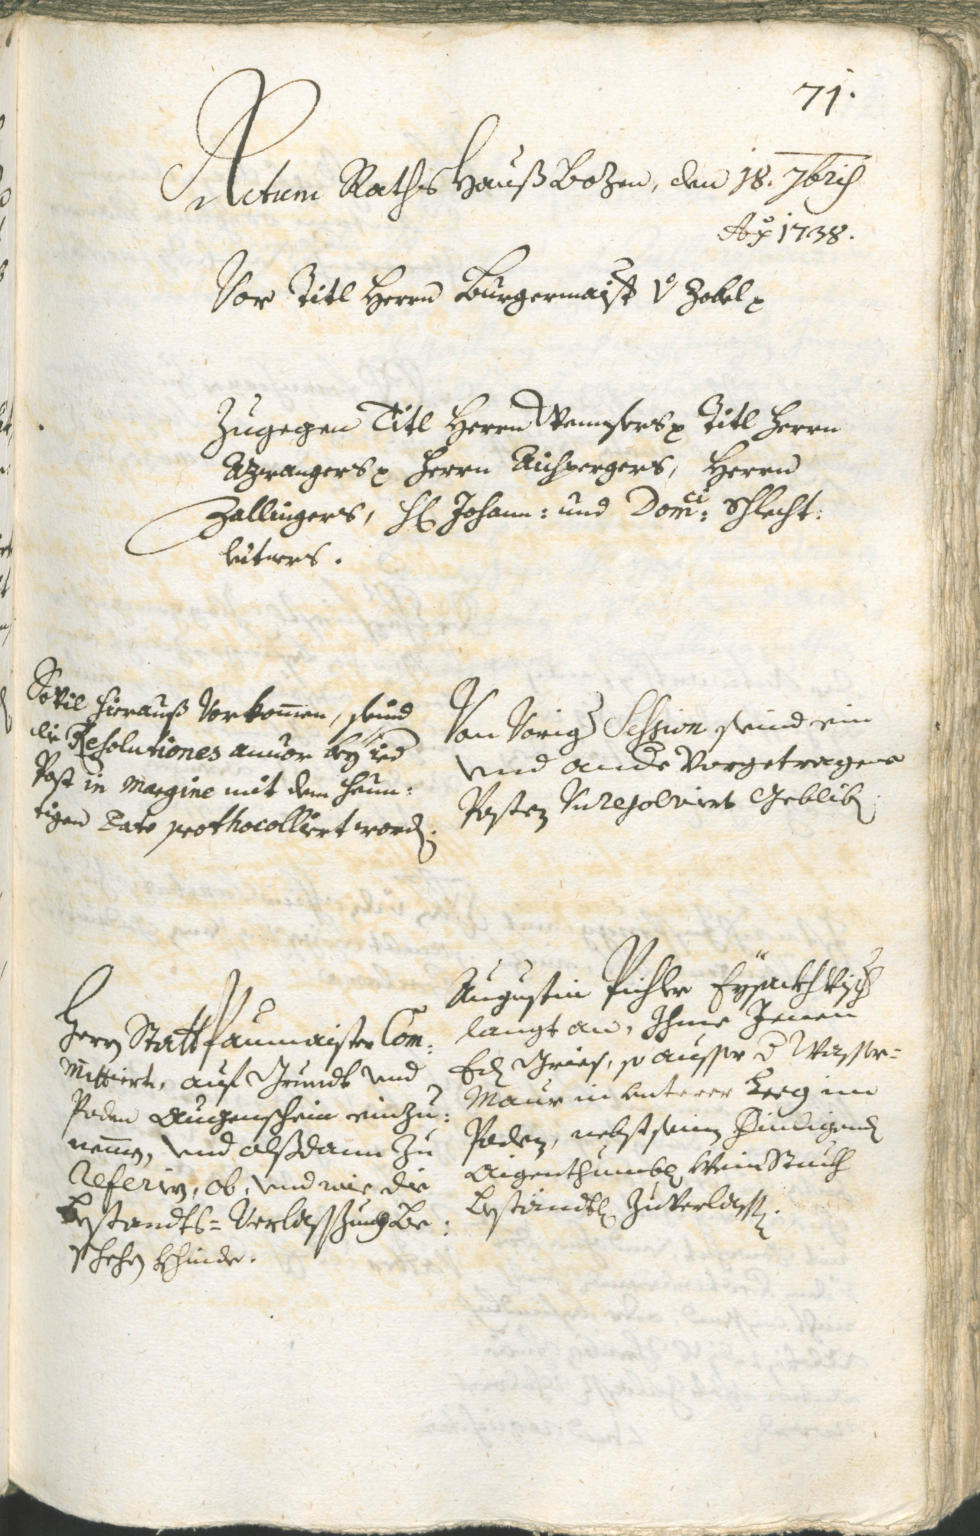 71.
Actum Rathshauß Bozen, den 18. 7bris
Ao 1738.
Vor Titl Herrn Burgermaister v Zobel
Zugegen Titl Herrn Titl Herrn
Azwangers Herrn Aichpergers, Herrn
Zallingers, H: Johann: und Domci: Schlecht:
leitners.
Sovil hierauß vorkommen, seind
die Resolutiones anuor bey ied
Post in Margine mit dem heun:
tigen Dato prothocolliert word.
Von vorig Session seind ein
und andre vorgetragene
Posten Unresolviert geblib.
Herrn Statt Paumaister Com:
mittiert, auf Grundt und
Poden Augenschein einzu:
nemen, und alßdann zu
referirn, ob, und wie die
Bestandts=Verlassung be:
schehen khinde.
Augustin Pichler Eysackhvischer
langt an, Ihme Jenen
Edl Gries, so ausser d Wasser=
Maur in unterer Leeg im
Poden, nebst seinem
aigenthumbl Stuckh
bestandtl zuverlassn.